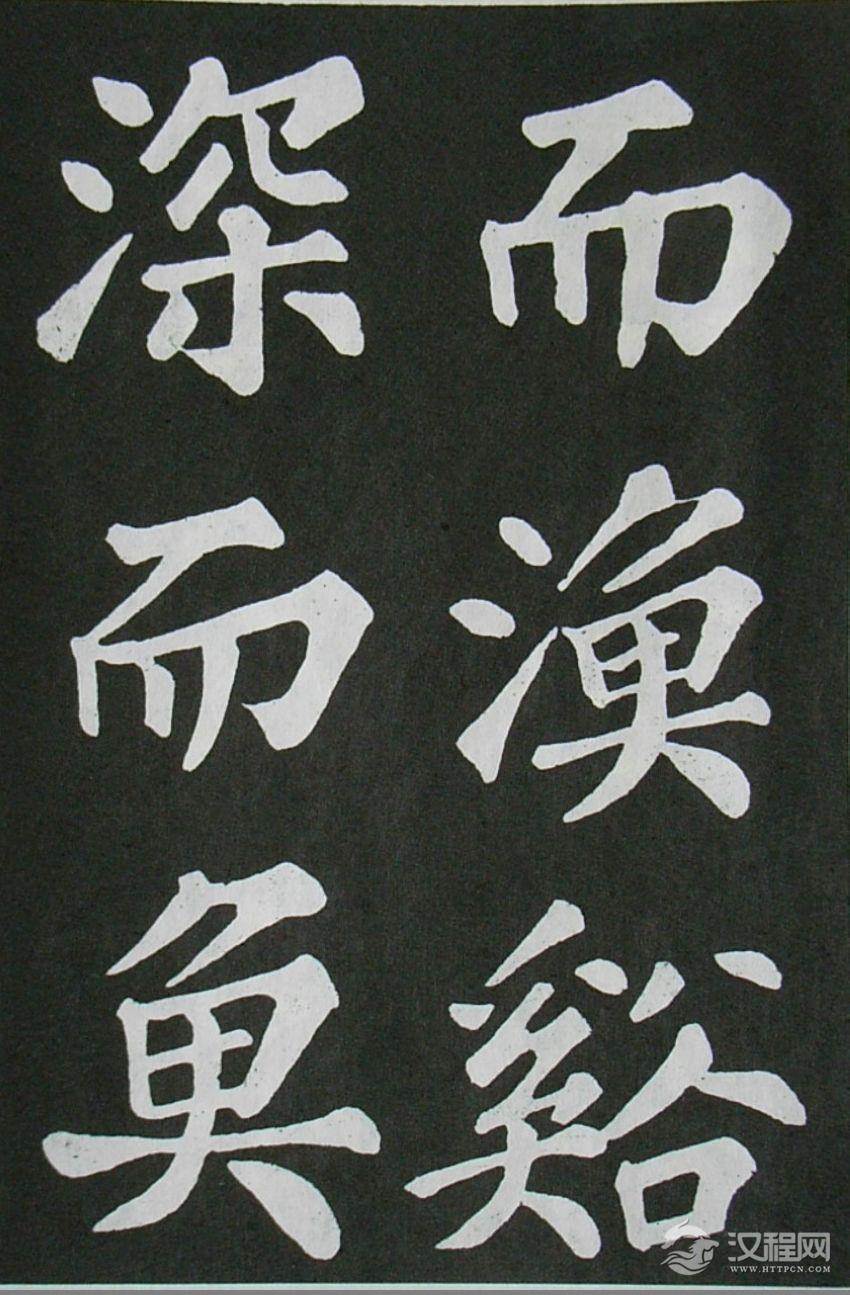 而漁谿
深而魚
汉程网
WWW.HTTPCN.COM